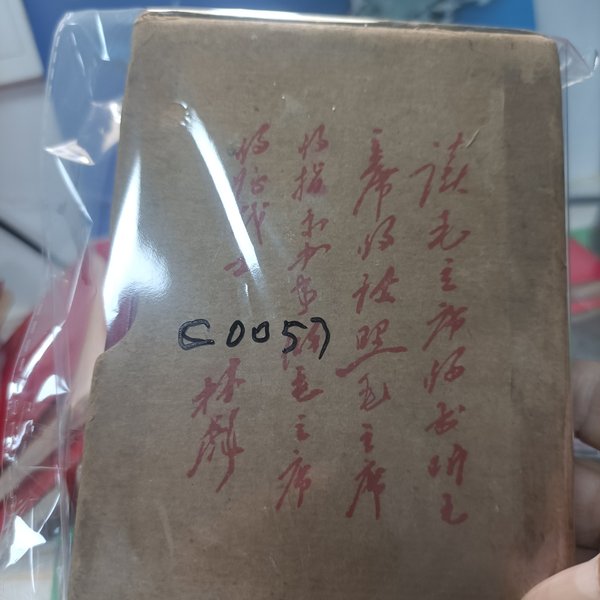 读毛主席的书听毛
主席的话照毛主席
的指示办事做毛主席
的好战士
林彪
C0057